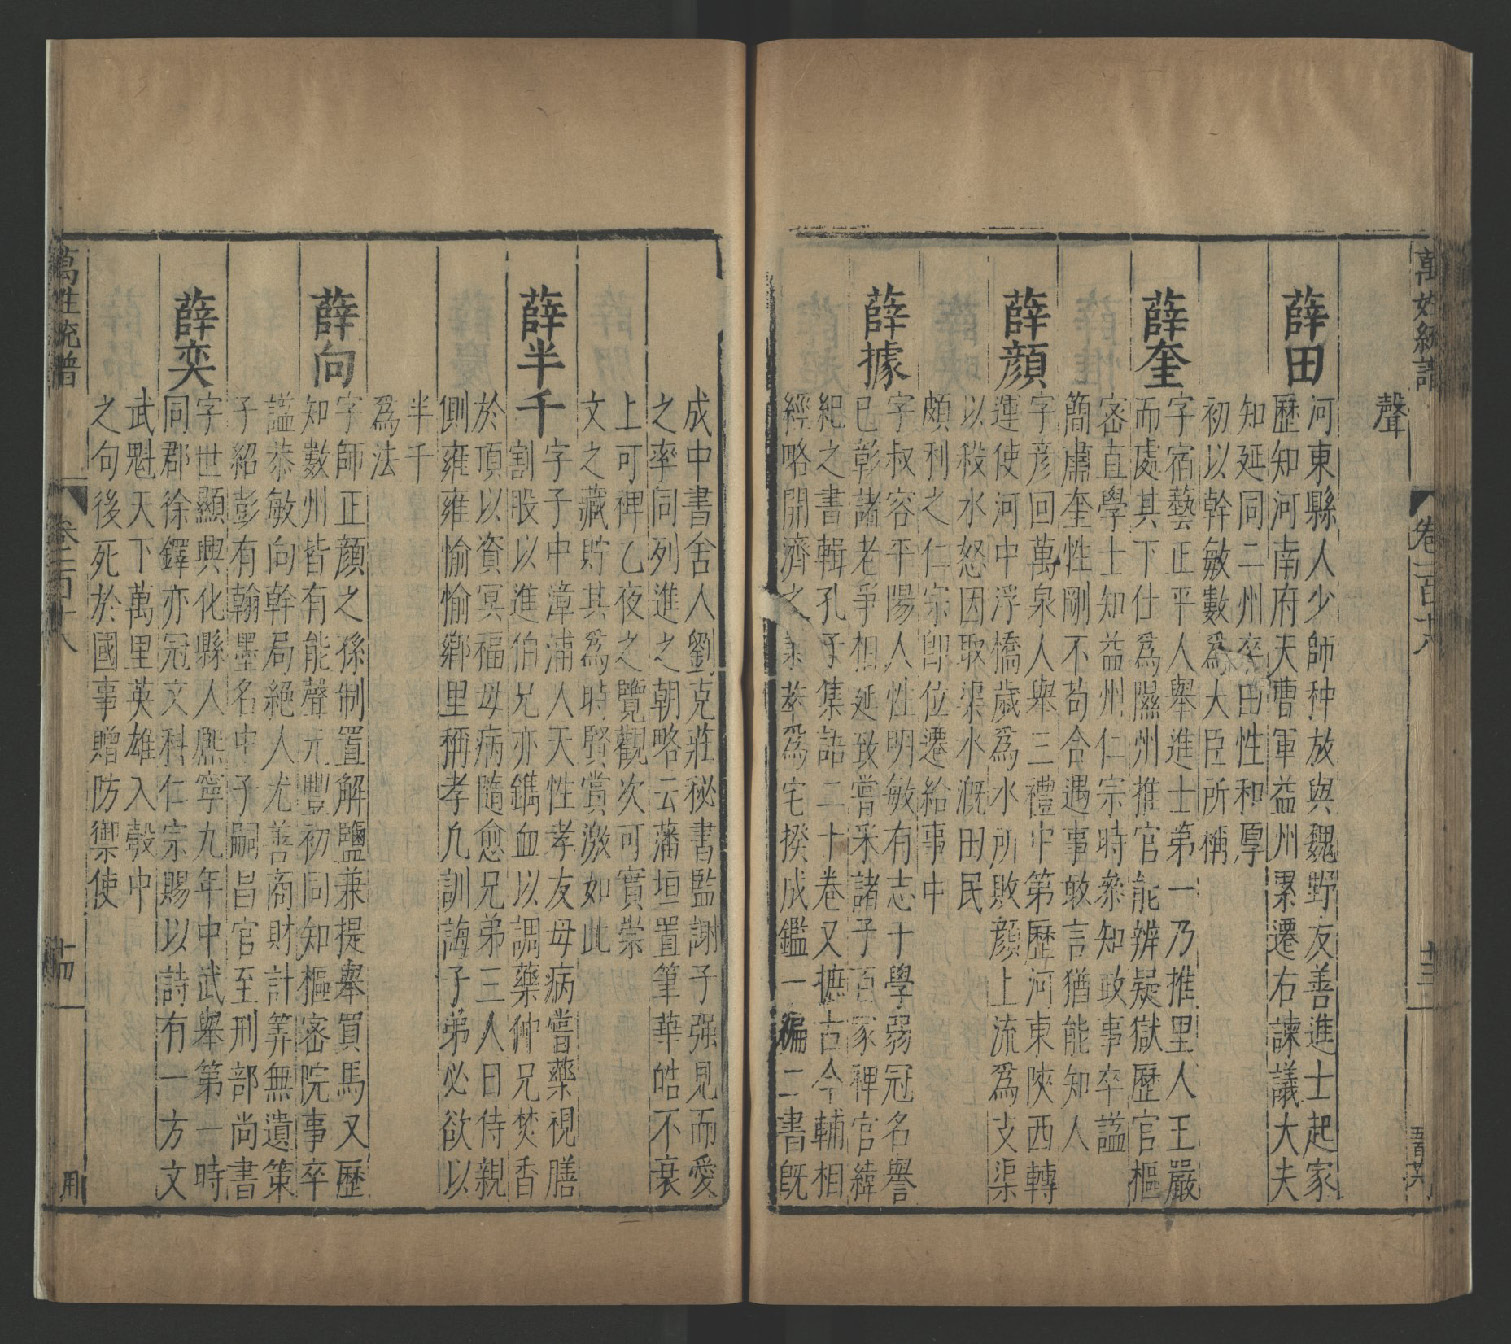 萬姓統譜
卷一百十八
十三
聲
薛田
河東縣人少師种放與魏野友善進士起家
歷知河南府天雄軍益州累遷右諫議大夫
知延同二州卒田性和厚
初以幹敏數為大臣所稱
薛奎
字宿藝正平人舉進士第一乃推里人王嚴
而處其下仕為隰州推官能辨疑獄歷官樞
密直學士知益州仁宗時參知政事卒謚
簡肅奎性剛不苟合遇事敢言猶能知人
薛顏
字彦回萬泉人舉三禮中第歷河東陝西轉
運使河中浮橋歲為水所敗顏上流為支渠
以殺水怒因取渠水溉田民
頗利之仁宗卽位遷給事中
薛據
字叔容平陽人性明敏有志于學弱冠名譽
已彰諸老爭相延致嘗采諸子百家稗官緯
紀之書輯孔子集語二十卷又摭古今輔相
經略開濟之 為宅揆成鑑一編二書旣
成中書舍人劉克莊秘書監謝子强見而愛
之率同列進之朝略云藩垣置筆華皓不衰
上可裨乙夜之覽觀次可實崇
文之藏貯其為時賢賞激如此
薛半千
字子中漳浦人天性孝友母病嘗藥視膳
割股以進伯兄亦鐫血以調藥仲兄焚香
於頂以資冥福母病隨愈兄弟三人日侍親
側雍雍愉愉鄉里稱孝凡訓誨子弟必欲以
半千
為法
薛向
字師正顏之孫制置解鹽兼提舉買馬又歷
知數州皆有能聲元豐初同知樞密院事卒
謚恭敏向幹局絕人尤善商財計筭無遺策
子紹彭有翰墨名中子嗣昌官至刑部尚書
薛奕
字世顯興化縣人熙寧九年中武舉第一時
同郡徐鐸亦冠文科仁宗賜以詩有一方文
武魁天下萬里英雄入彀中
之句後死於國事贈防禦使
萬姓統譜
卷一百十八
十四
用